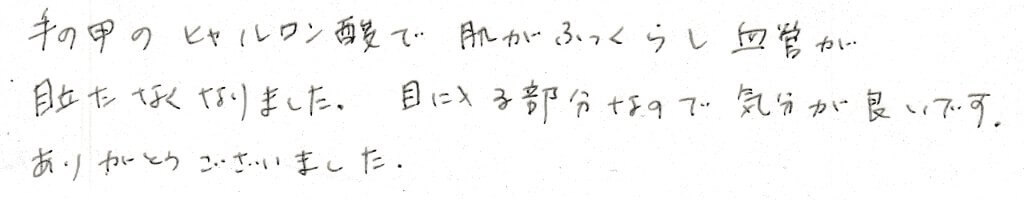 手の甲のヒャルロン酸で 肌がふっくらし 血管が
目立たなくなりました。 目に入る部分なので 気分が良いです.
ありがとうございました.